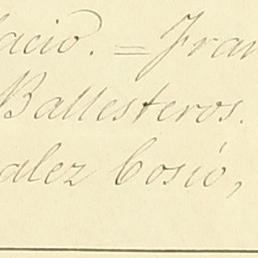 lacio. = Fran
Ballesteros.
alez Cosió,